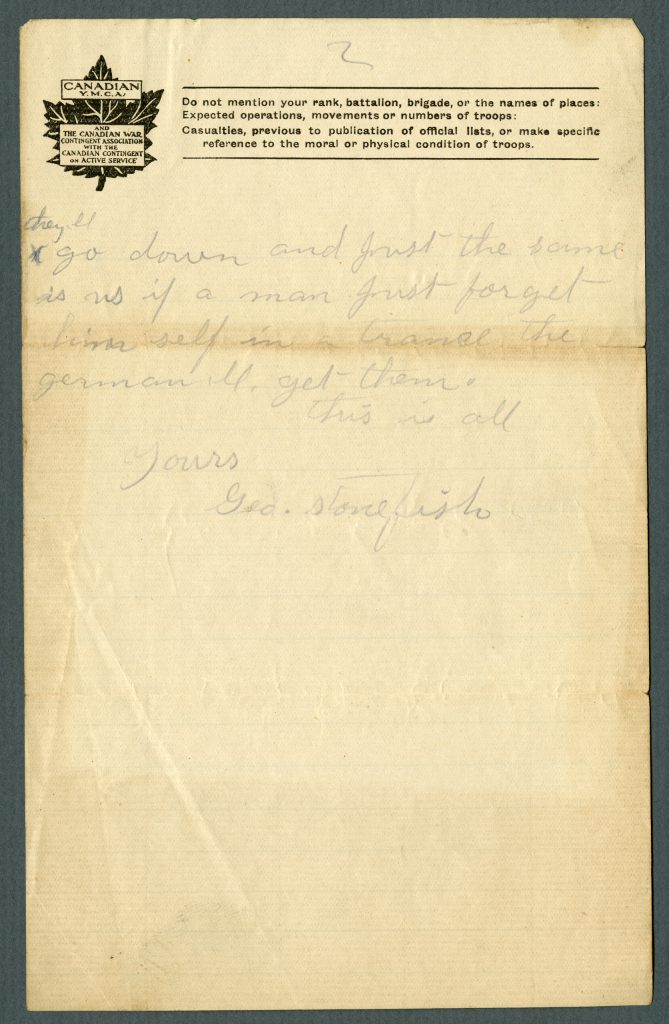 2
CANADIAN
Y.M.C.A.
AND
THE CANADIAN WAR
CONTINGENT ASSOCIATION
WITH THE
CANADIAN CONTINGENT
ON ACTIVE SERVICE
Do not mention your rank, battalion, brigade, or the names of places:
Expected operations, movements or numbers of troops:
Casualties, previous to publication of official lists, or make specific
reference to the moral or physical condition of troops.
they,ll
x go down and just the same
is us if a man just forget
him self in a trance the
german ll. get them.
this is all
Yours
Geo. Stonefish